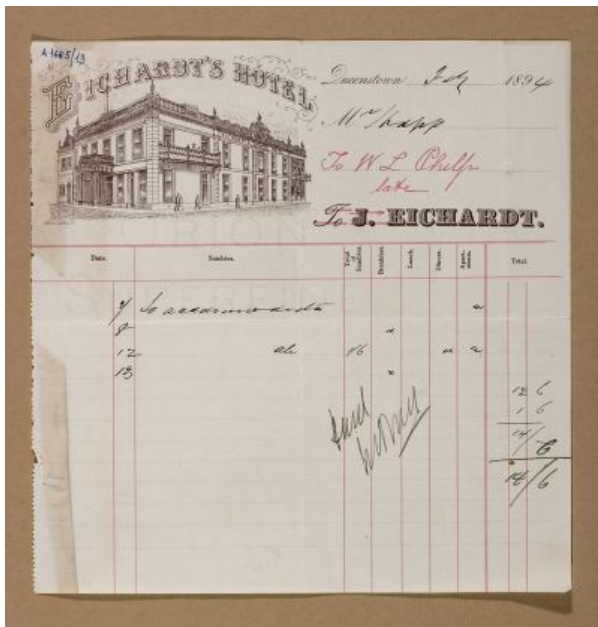 A 1685/13
EICHARDT'S HOTEL
Queenstown Feby 1894
Mr
To W L Phelps
late
To J. EICHARDT.
Date. Sundries. Total of Sundries. Breakfast. Lunch. Dinner. Apartments. Total.
7 To accommodation
8
12 ale 1/6
13
12 6
1 6
14/6
14/6